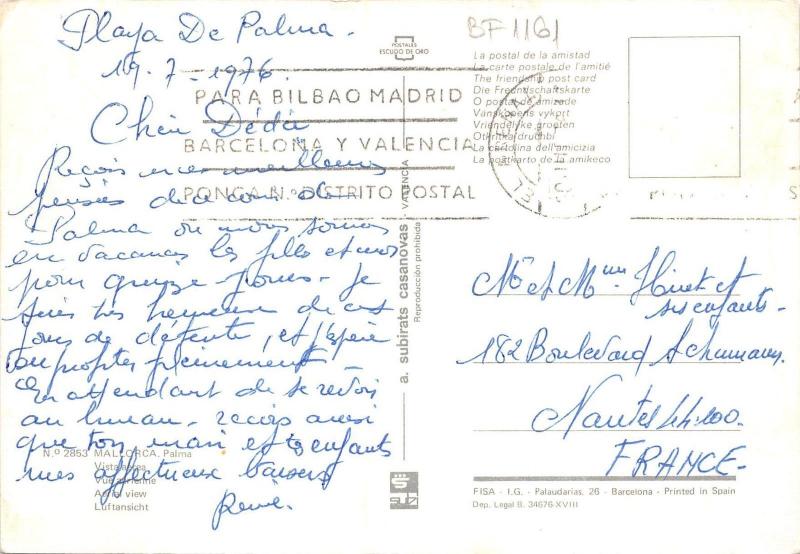 Playa De Palma.
19.7-1976.
Chère Dédée
Reçois mes meilleures
pensées de ce coin de
Palma ou nous sommes
en vacances les filles et moi
pour quinze jours. Je
suis très heureuse de ces
jours de détente, et j'espère
en profiter pleinement.
En attendant de se revoir
au bureau. reçois ainsi
que ton mari et tes enfants
mes affectueux baisers
Renée.
N.º 2853 MALLORCA. Palma
Vista aérea
Vue aérienne
Aerial view
Luftansicht
POSTALES
ESCUDO DE ORO
PARA BILBAO MADRID
BARCELONA Y VALENCIA
PONGA N.º DISTRITO POSTAL
a. subirats casanovas - VALENCIA
Reproducción prohibida
BF 1161
La postal de la amistad
La carte postale de l'amitié
The friendship post card
Die Freundschaftskarte
O postal de amizade
Vänskapens vykort
Vriendelijke groeten
Otkritka druzhbi
La cartolina dell'amicizia
La poŝtkarto de la amikeco
Mr et Mme et
ses enfants.
182 Boulevard Schumann.
Nantes 44.100.
FRANCE-
FISA - I.G. - Palaudarias, 26 - Barcelona - Printed in Spain
Dep. Legal B. 34676-XVIII